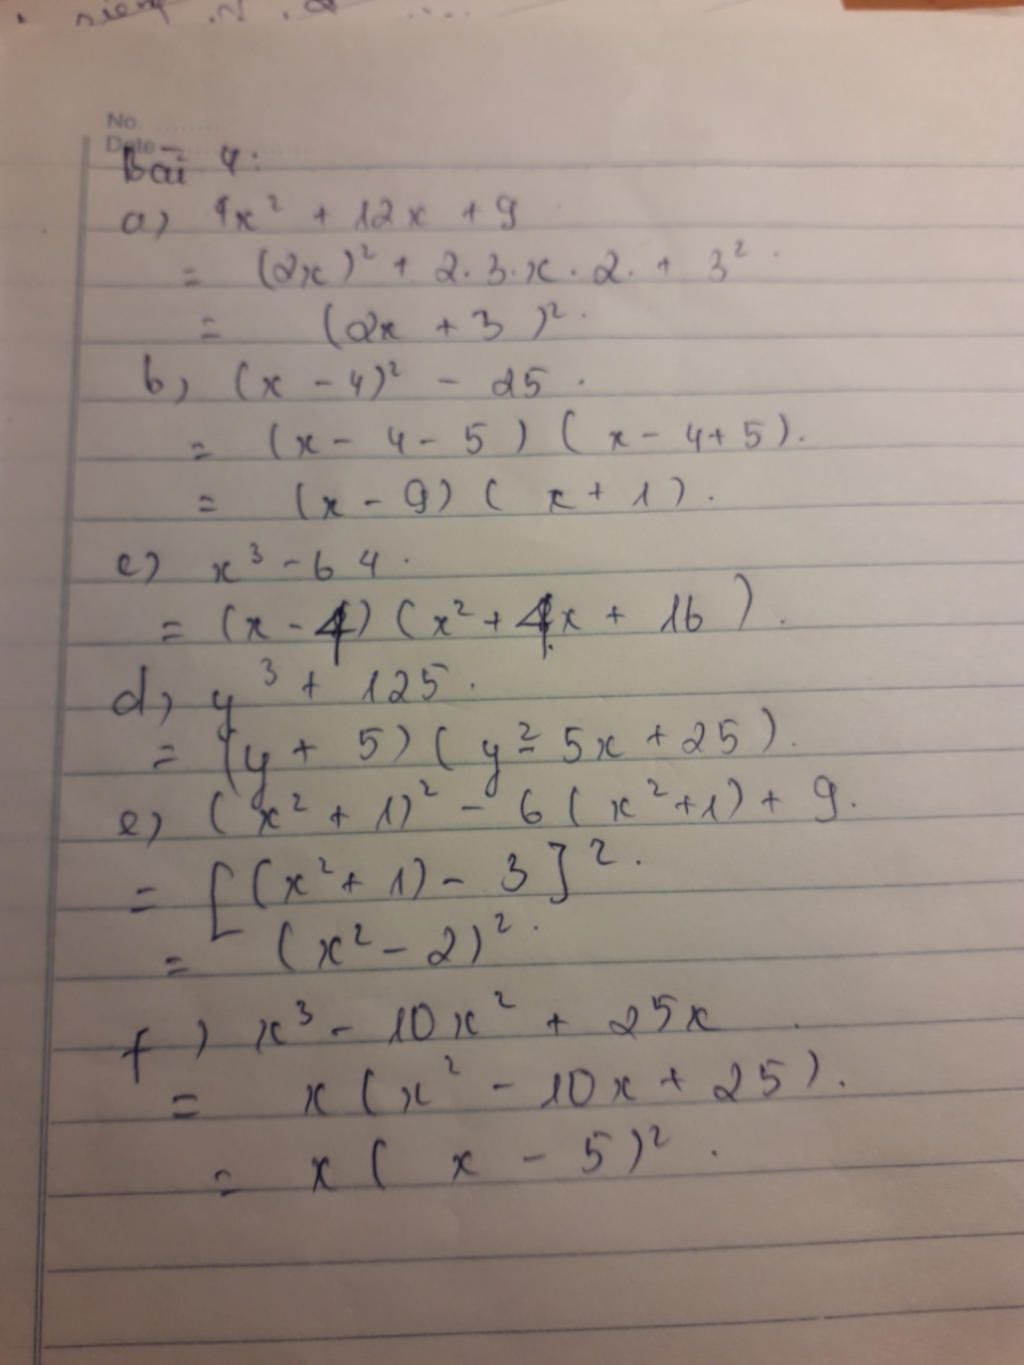 No.
Date
Bài 4:
a) 4x² + 12x + 9
= (2x)² + 2.3.x.2. + 3².
= (2x + 3)².
b) (x - 4)² - 25.
= (x - 4 - 5) (x - 4 + 5).
= (x - 9) (x + 1).
c) x³ - 64.
= (x - 4) (x² + 4x + 16).
d) y³ + 125.
= (y + 5) (y² - 5x + 25).
e) (x² + 1)² - 6 (x² + 1) + 9.
= [(x² + 1) - 3]².
= (x² - 2)².
f) x³ - 10x² + 25x
= x (x² - 10x + 25).
= x (x - 5)².